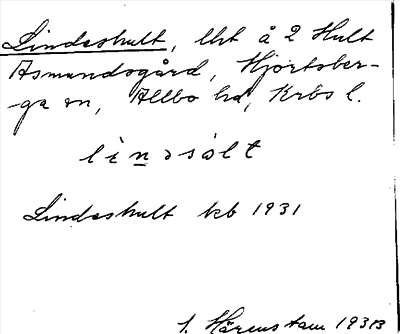 Lindeshult, lht å 2 Hult
Asmundsgård, Hjortsber-
-ga sn, Allbo hd, Krbs l.
lindsolt
Lindeshult kb 1931
S. Hårenstam 1933